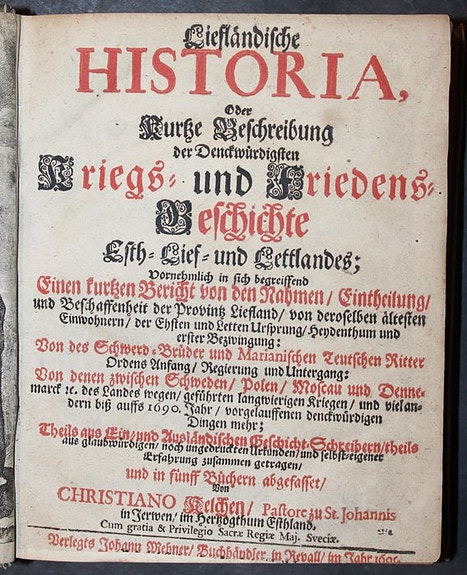 Liefländische
HISTORIA,
Oder
Kurtze Beschreibung
der Denckwürdigsten
Kriegs- und Friedens-
Geschichte
Esth- Lief- und Lettlandes;
Vornehmlich in sich begreiffend
Einen kurtzen Bericht von den Nahmen/ Eintheilung/
und Beschaffenheit der Provintz Liefland/ von deroselben ältesten
Einwohnern/ der Ehsten und Letten Ursprung/ Heydenthum und
erster Bezwingung:
Von des Schwerd-Brüder und Marianischen Teutschen Ritter
Ordens Anfang/ Regierung und Untergang:
Von denen zwischen Schweden/ Polen/ Moscau und Denne-
marck ꝛc. des Landes wegen/ geführten langwierigen Kriegen/ und viel an-
dern biß auffs 1690. Jahr/ vorgelauffenen denckwürdigen
Dingen mehr;
Theils aus Ein/und Ausländischen Geschicht-Schreibern/theils
aus glaubwürdigen/ noch ungedruckten Urkunden/und selbst-eigener
Erfahrung zusammen getragen/
und in fünff Büchern abgefasset/
Von
CHRISTIANO Kelchen/ Pastore zu St. Johannis
in Jerwen/ im Hertzogthum Esthland.
Cum gratia & Privilegio Sacræ Regiæ Maj. Sveciæ.
Verlegts Johann Mehner/ Buchhändler in Revall/ im Jahr